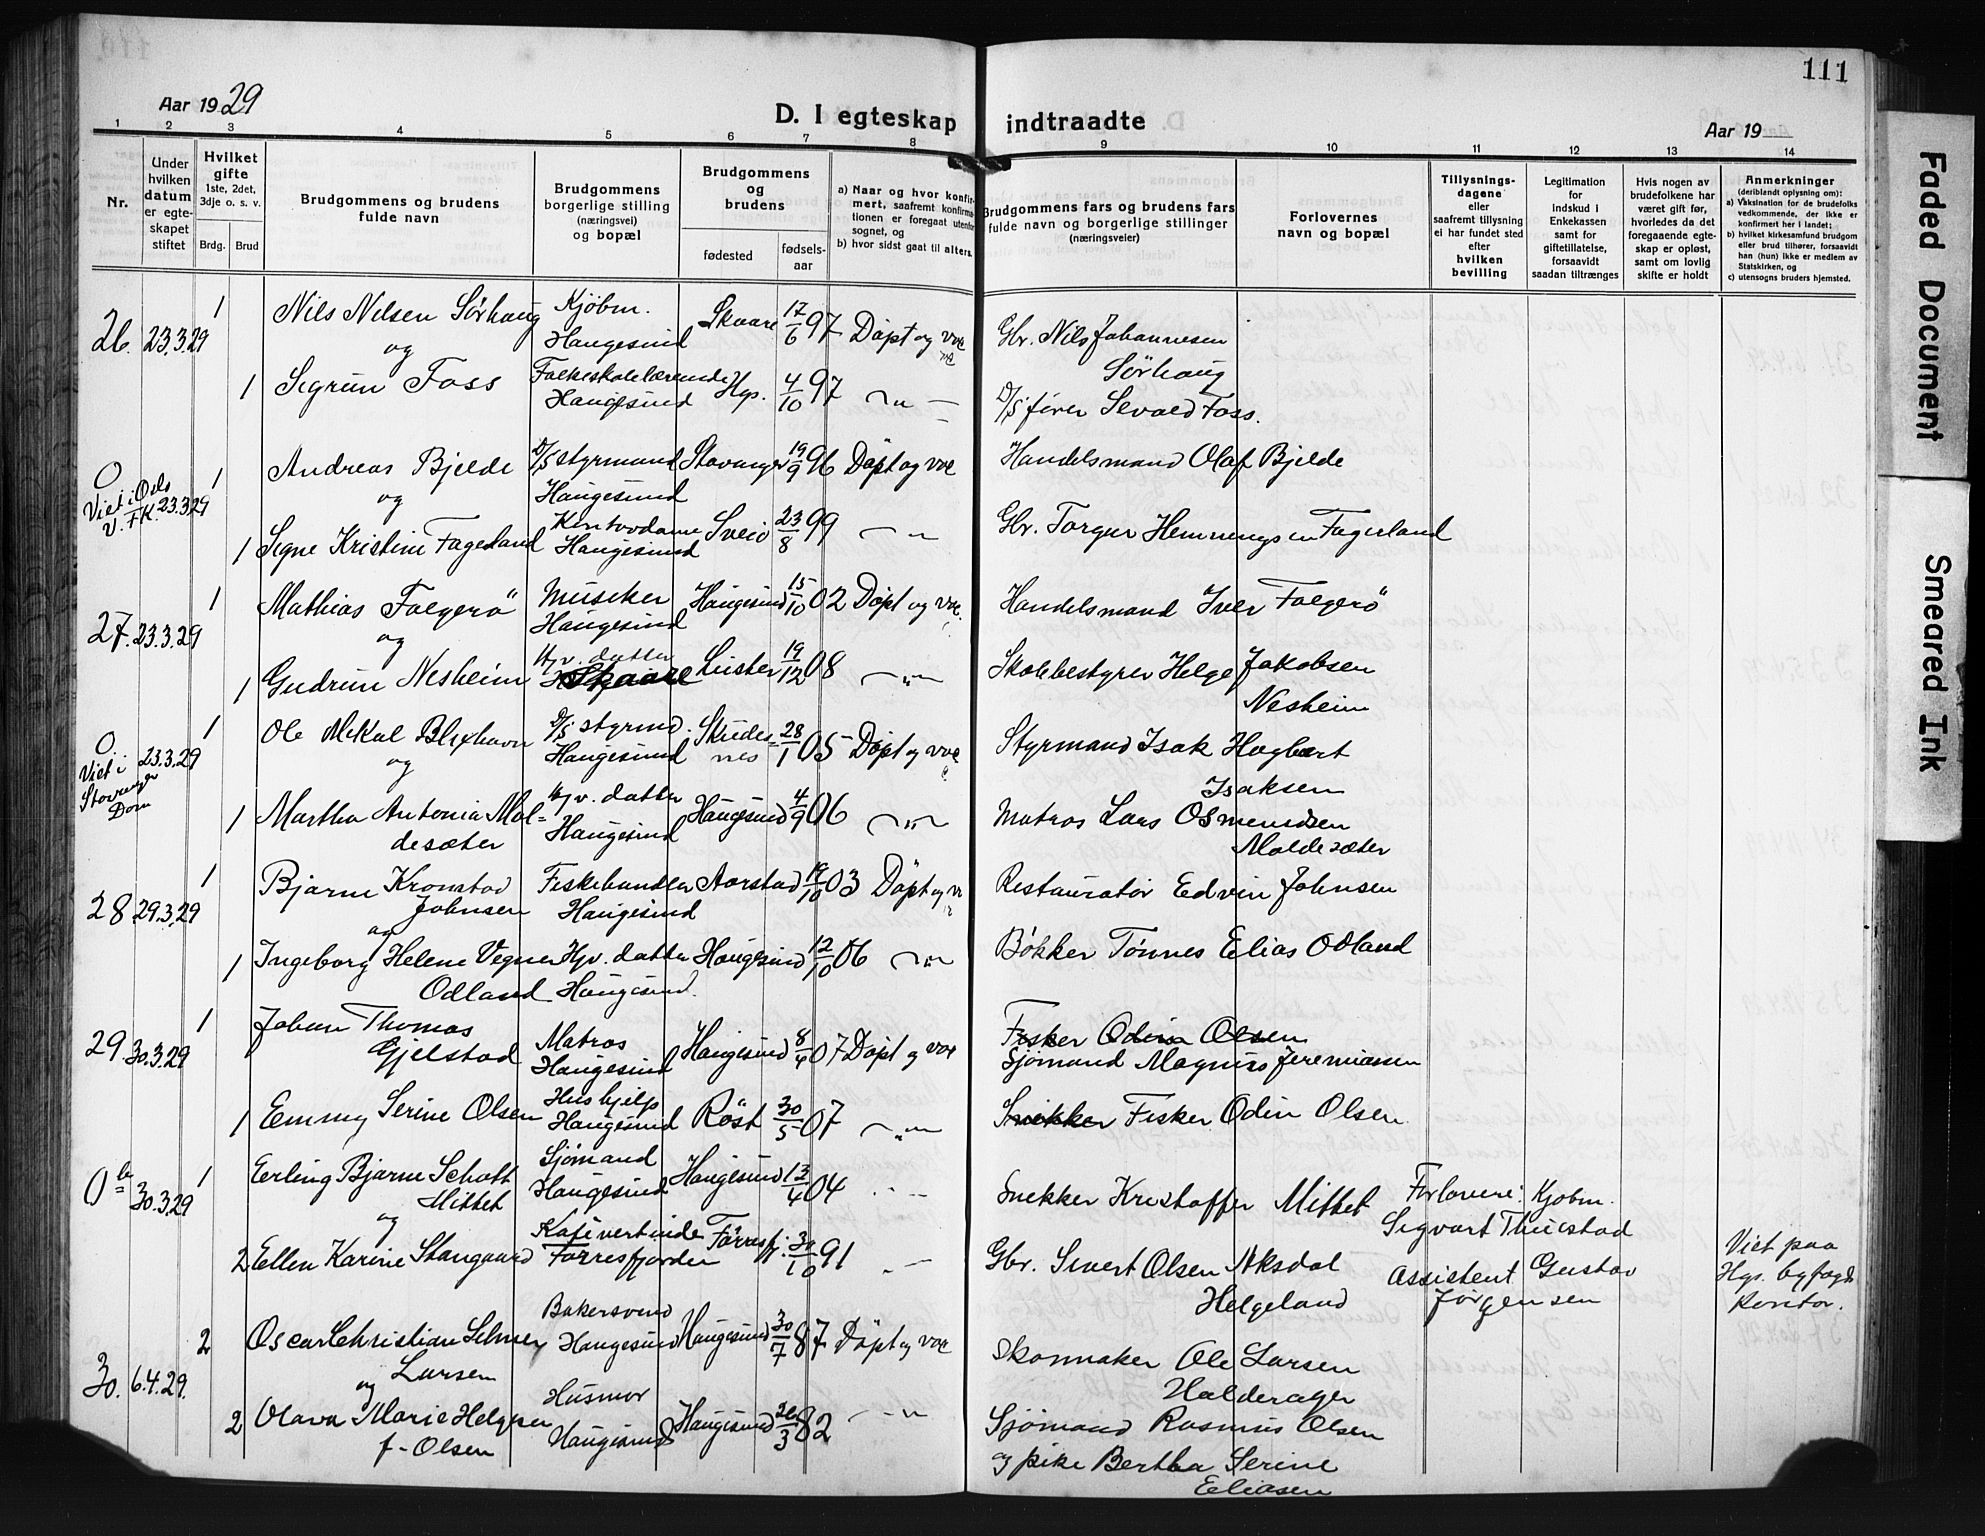 111
Aar 1929
D. I egteskap indtraadte
Aar 19
1 2 3 4 5 6 7 8 9 10 11 12 13 14
Nr.
Under
hvilken
datum
er egte-
skapet
stiftet
Hvilket
gifte
1ste, 2det,
3dje o. s. v.
Brdg. Brud
Brudgommens og brudens
fulde navn
Brudgommens
borgerlige stilling
(næringsvei)
og bopæl
Brudgommens
og
brudens
fødested
fødsels-
aar
a) Naar og hvor konfir-
mert, saafremt konfirma-
tionen er foregaat utenfor
sognet, og
b) hvor sidst gaat til alters.
Brudgommens fars og brudens fars
fulde navn og borgerlige stillinger
(næringsveier)
Forlovernes
navn og bopæl
Tillysnings-
dagene
eller
saafremt tillysning
ei har fundet sted
efter
hvilken
bevilling
Legitimation
for
indskud i
Enkekassen
samt for
giftetillatelse,
forsaavidt
saadan tiltrænges
Hvis nogen av
brudefolkene har
været gift før,
hvorledes da det
foregaaende egte-
skap er opløst,
samt om lovlig
skifte er holdt
Anmerkninger
(deriblandt oplysning om):
a) Vaksination for de brudefolks
vedkommende, der ikke er
konfirmert her i landet;
b) hvilket kirkesamfund brudgom
eller brud tilhører, forsaavidt
han (hun) ikke er medlem av
Statskirken, og
c) utensogns bruders hjemsted.
26. 23.3.29 1 Nils Nilsen Sørhaug Kjøbm. Haugesund Skaare 17/6 97 Døpt og vac Gbr. Nils Johannesen
Sørhaug
og
1 Sigrun Foss Folkeskolelærerinde Haugesund Hgs. 4/10 97 D/S fører Sevald Foss.
0 Viet i Oslo V. FK. 23.3.29 1 Andreas Bjelde D/S styrmand Haugesund Stavanger 19/9 96 Døpt og vac Handelsmand Olaf Bjelde
og
1 Signe Kristine Fagerland Kontordame Haugesund Sveio 23/8 99 Gbr. Torger Hemmingsen Fagerland
27. 23.3.29 1 Mathias Falgerø Musiker Haugesund Haugesund 15/10 02 Døpt og vac. Handelsmand Iver Falgerø
og
1 Gudrun Nesheim Hjv. datter Skaare Luster 19/12 08 Skolebestyrer Helge Jakobsen
Nesheim
0 Viet i Stavanger Dom 23.3.29 1 Ole Mikal Blixhavn D/S styrmd. Haugesund Skudesnes 28/1 05 Døpt og vac Styrmand Isak Hagbart
Isaksen
og
1 Martha Antonia Mol=
desæter Hjv. datter Haugesund Haugesund 4/9 06 Matros Lars Osmundsen
Moldesæter
28 29.3.29 1 Bjarne Kronstad
Johnsen Fiskehandler Haugesund Aarstad 19/10 03 Døpt og v Restauratør Edvin Johnsen
og
1 Ingeborg Helene Vegner
Odland Hjv. datter Haugesund. Haugesund 12/10 06 Bøkker Tønnes Elias Odland
29 30.3.29 1 Johan Thomas
Gjelstad Matros Haugesund Haugesund 8/4 07 Døpt og vac Fisker Odin Olsen
Sjømand Magnus Jeremiassen
1 Emmy Serine Olsen Hushjelp Haugesund Røst 30/5 07 Snekker Fisker Odin Olsen
0 b 30.3.29 1 Erling Bjarne Schött
Mittet Sjømand Haugesund Haugesund 13/4 04 Snekker Kristoffer Mittet Forlovere: Kjøbm.
Sigvart Thuestad
og
2 Ellen Karine Stangaard Kafévertinde Førresfjorden Førresfj. 30/10 91 Gbr. Sivert Olsen Aksdal
Helgeland Assistent Gustav
Jørgensen Viet paa
Hgs. byfogds
kontor.
30. 6.4.29. 2 Oscar Christian Selmer
Larsen Bakersvend Haugesund Haugesund 30/7 87 Døpt og vac Skomaker Ole Larsen
Halderager
og
2 Olava Marie Helgesen
f- Olsen Husmor Haugesund Haugesund 26/3 82 Sjømand Rasmus Olsen
og pike Bertha Serine
Eliasen
Faded Document
Smeared Ink